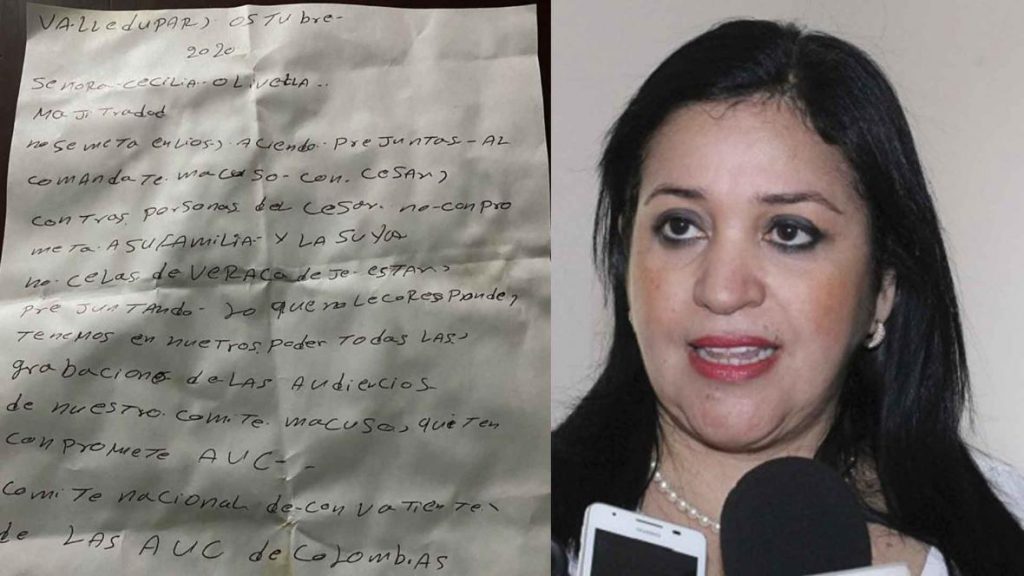 VALLEDUPAR, OSTUbre-
2020
Señora CECILIA. OLIVELLA..
MAJITRADAD
no se meta en lios, ACiendo. PreJuntas - AL
COMANDATE. MACUSO - CON. CESAR,
CONTRAS PORSONAS del CESAR. no-conpro
meTA. A SU FAMILIA - Y LA SUYA
no. CELAS de VERACA de JE-ESTAR,
PREJUNTANDO - Lo que no Le CORESPONDE,
TENEMOS en nuETROS. Poder TODAS LAS,
grabacione de LAS AUDIENCIOS
de nuestro. comiTe. MACUSO, QUETEN
COMPROMETE AUC--
COMITE NACIONAL de-CONVATIENTES
de LAS AUC de COLOMBIAS